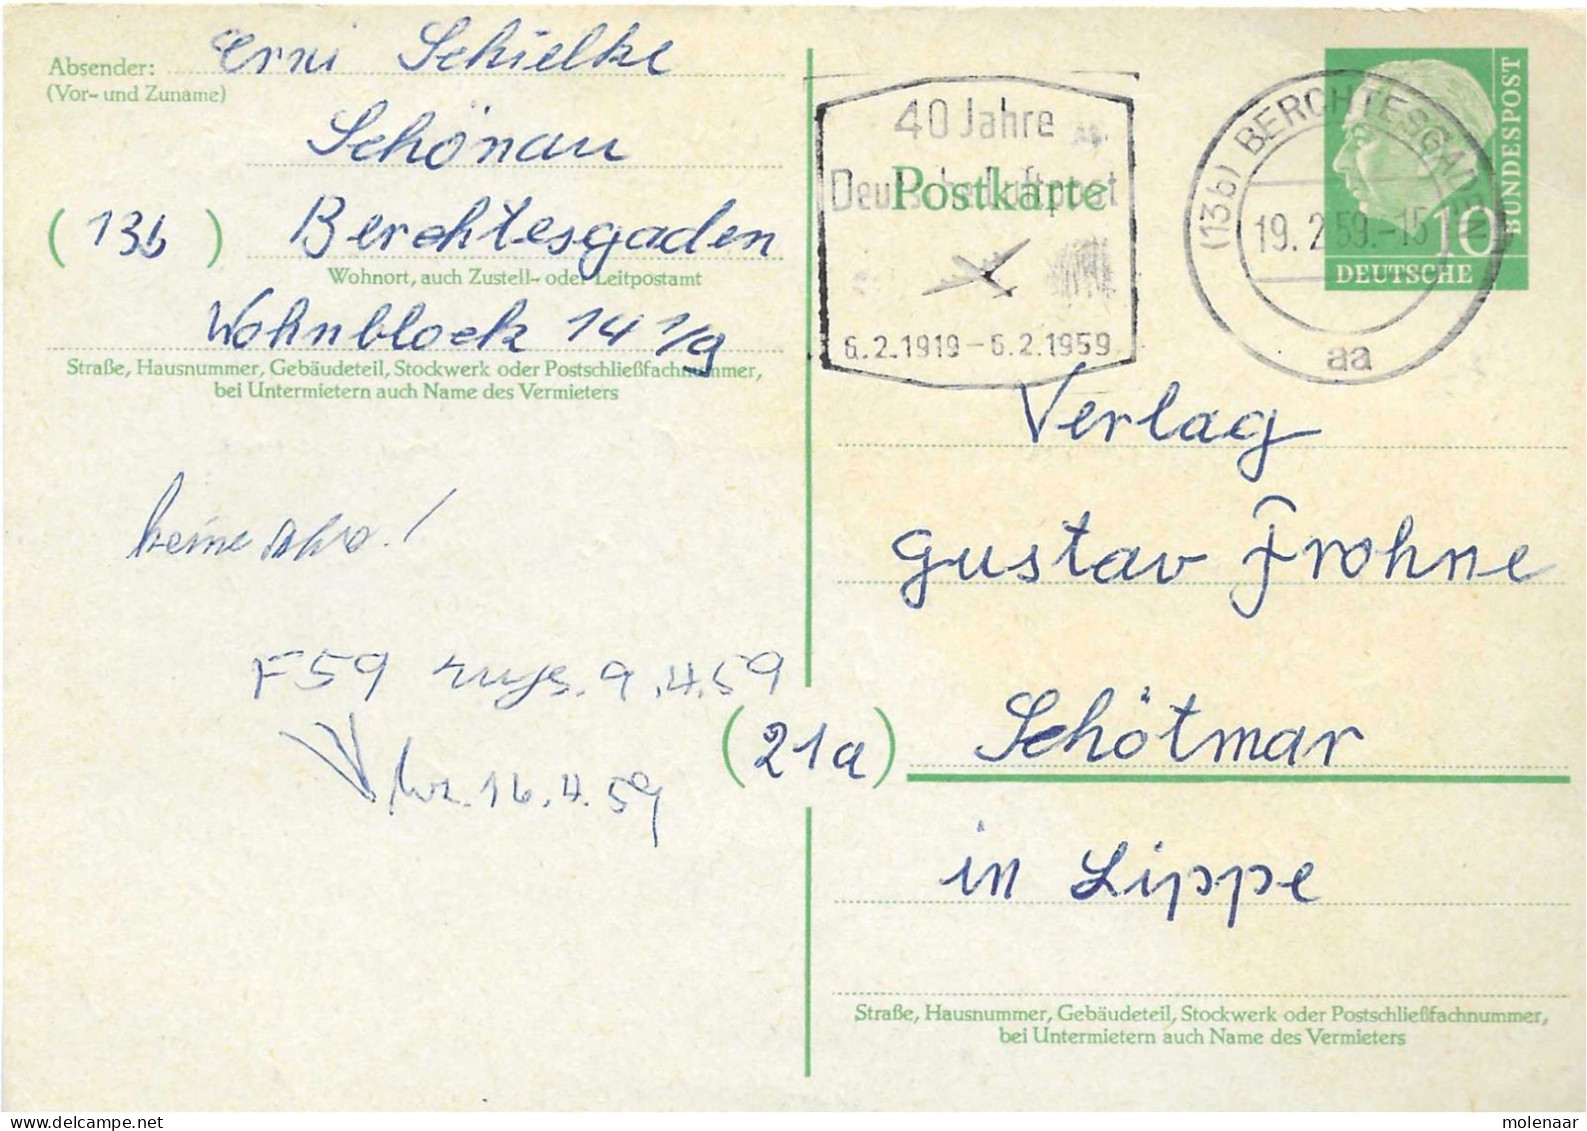 Absender: Erni Schielke
(Vor- und Zuname)
Schönau
(13b) Berchtesgaden
Wohnort, auch Zustell- oder Leitpostamt
Wohnblock 14 1/9
Straße, Hausnummer, Gebäudeteil, Stockwerk oder Postschließfachnummer,
bei Untermietern auch Name des Vermieters
40 Jahre
Deutsche Luftpost
6.2.1919-6.2.1959
Postkarte
(13b) BERCHTESGADEN
19. 2. 59.-15
aa
10
DEUTSCHE
BUNDESPOST
Verlag
Gustav Frohne
(21a) Schötmar
in Lippe
Straße, Hausnummer, Gebäudeteil, Stockwerk oder Postschließfachnummer,
bei Untermietern auch Name des Vermieters
keine
F59 9.4.59
16.4.59
molenaar